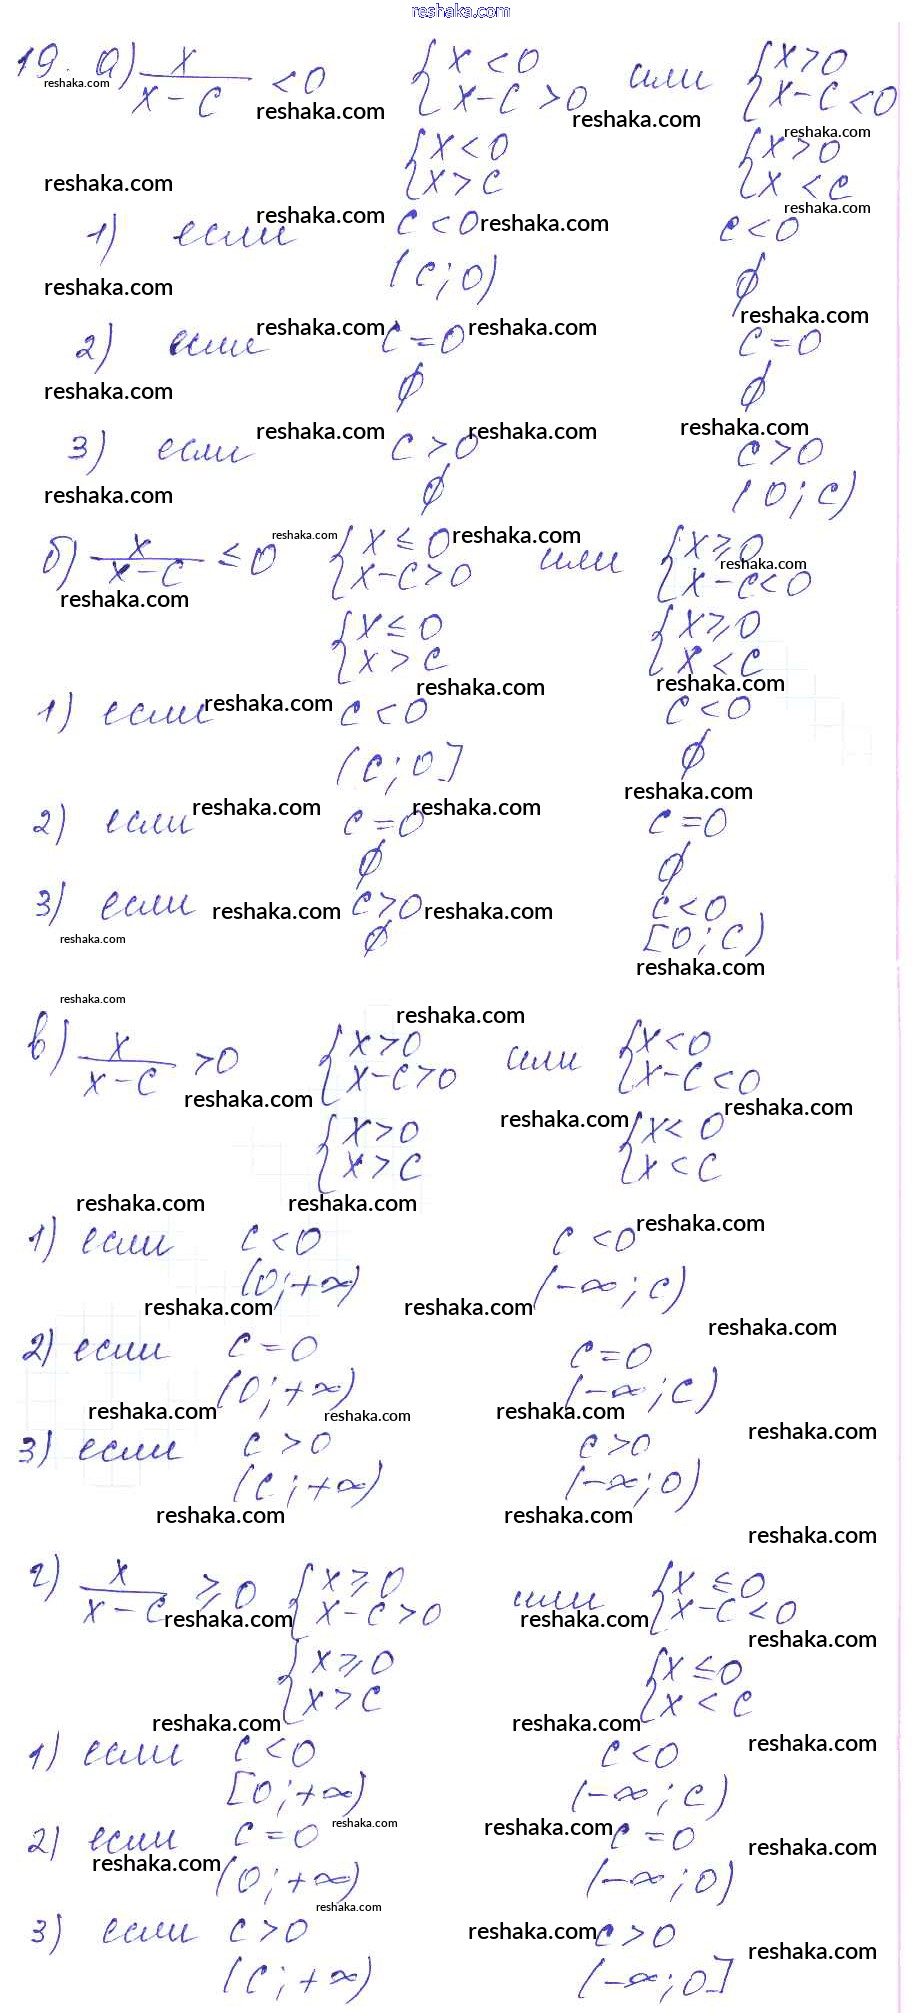 reshaka.com
19. а) x/(x-c) < 0 { x < 0 или { x > 0
{ x-c > 0 { x-c < 0
{ x < 0 { x > 0
{ x > c { x < c
1) если c < 0 c < 0
(c; 0) ∅
2) если c = 0 c = 0
∅ ∅
3) если c > 0 c > 0
∅ (0; c)
б) x/(x-c) ≤ 0 { x ≤ 0 или { x ≥ 0
{ x-c > 0 { x-c < 0
{ x ≤ 0 { x ≥ 0
{ x > c { x < c
1) если c < 0 c < 0
(c; 0] ∅
2) если c = 0 c = 0
∅ ∅
3) если c > 0 c < 0
∅ [0; c)
в) x/(x-c) > 0 { x > 0 или { x < 0
{ x-c > 0 { x-c < 0
{ x > 0 { x < 0
{ x > c { x < c
1) если c < 0 c < 0
(0; +∞) (-∞; c)
2) если c = 0 c = 0
(0; +∞) (-∞; c)
3) если c > 0 c > 0
(c; +∞) (-∞; 0)
г) x/(x-c) ≥ 0 { x ≥ 0 или { x ≤ 0
{ x-c > 0 { x-c < 0
{ x ≥ 0 { x ≤ 0
{ x > c { x < c
1) если c < 0 c < 0
[0; +∞) (-∞; c)
2) если c = 0 c = 0
(0; +∞) (-∞; 0)
3) если c > 0 c > 0
(c; +∞) (-∞; 0]